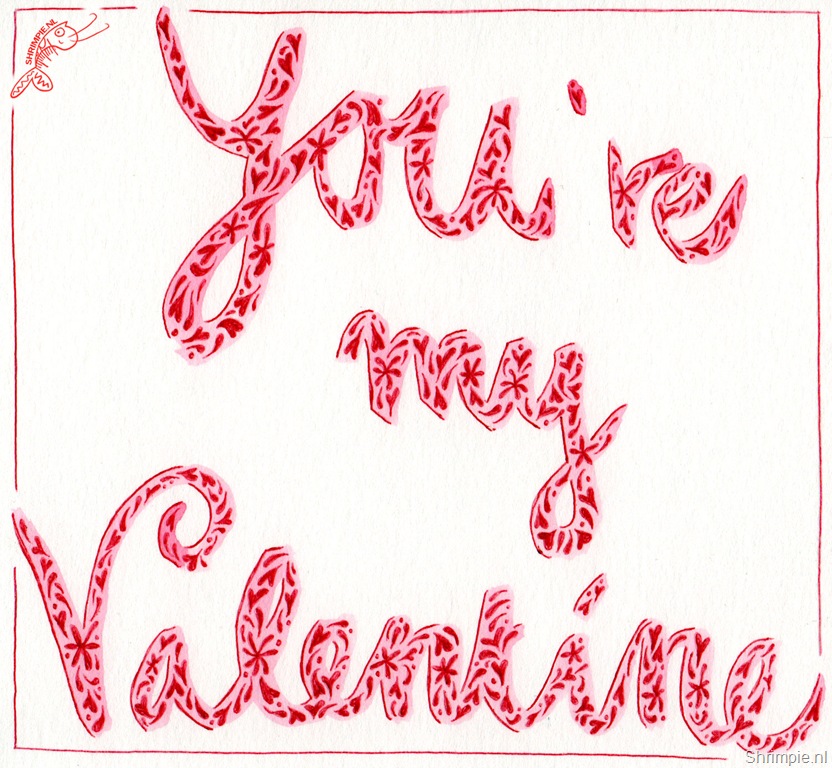 SHRIMPIE.NL
You're
my
Valentine
Shrimpie.nl